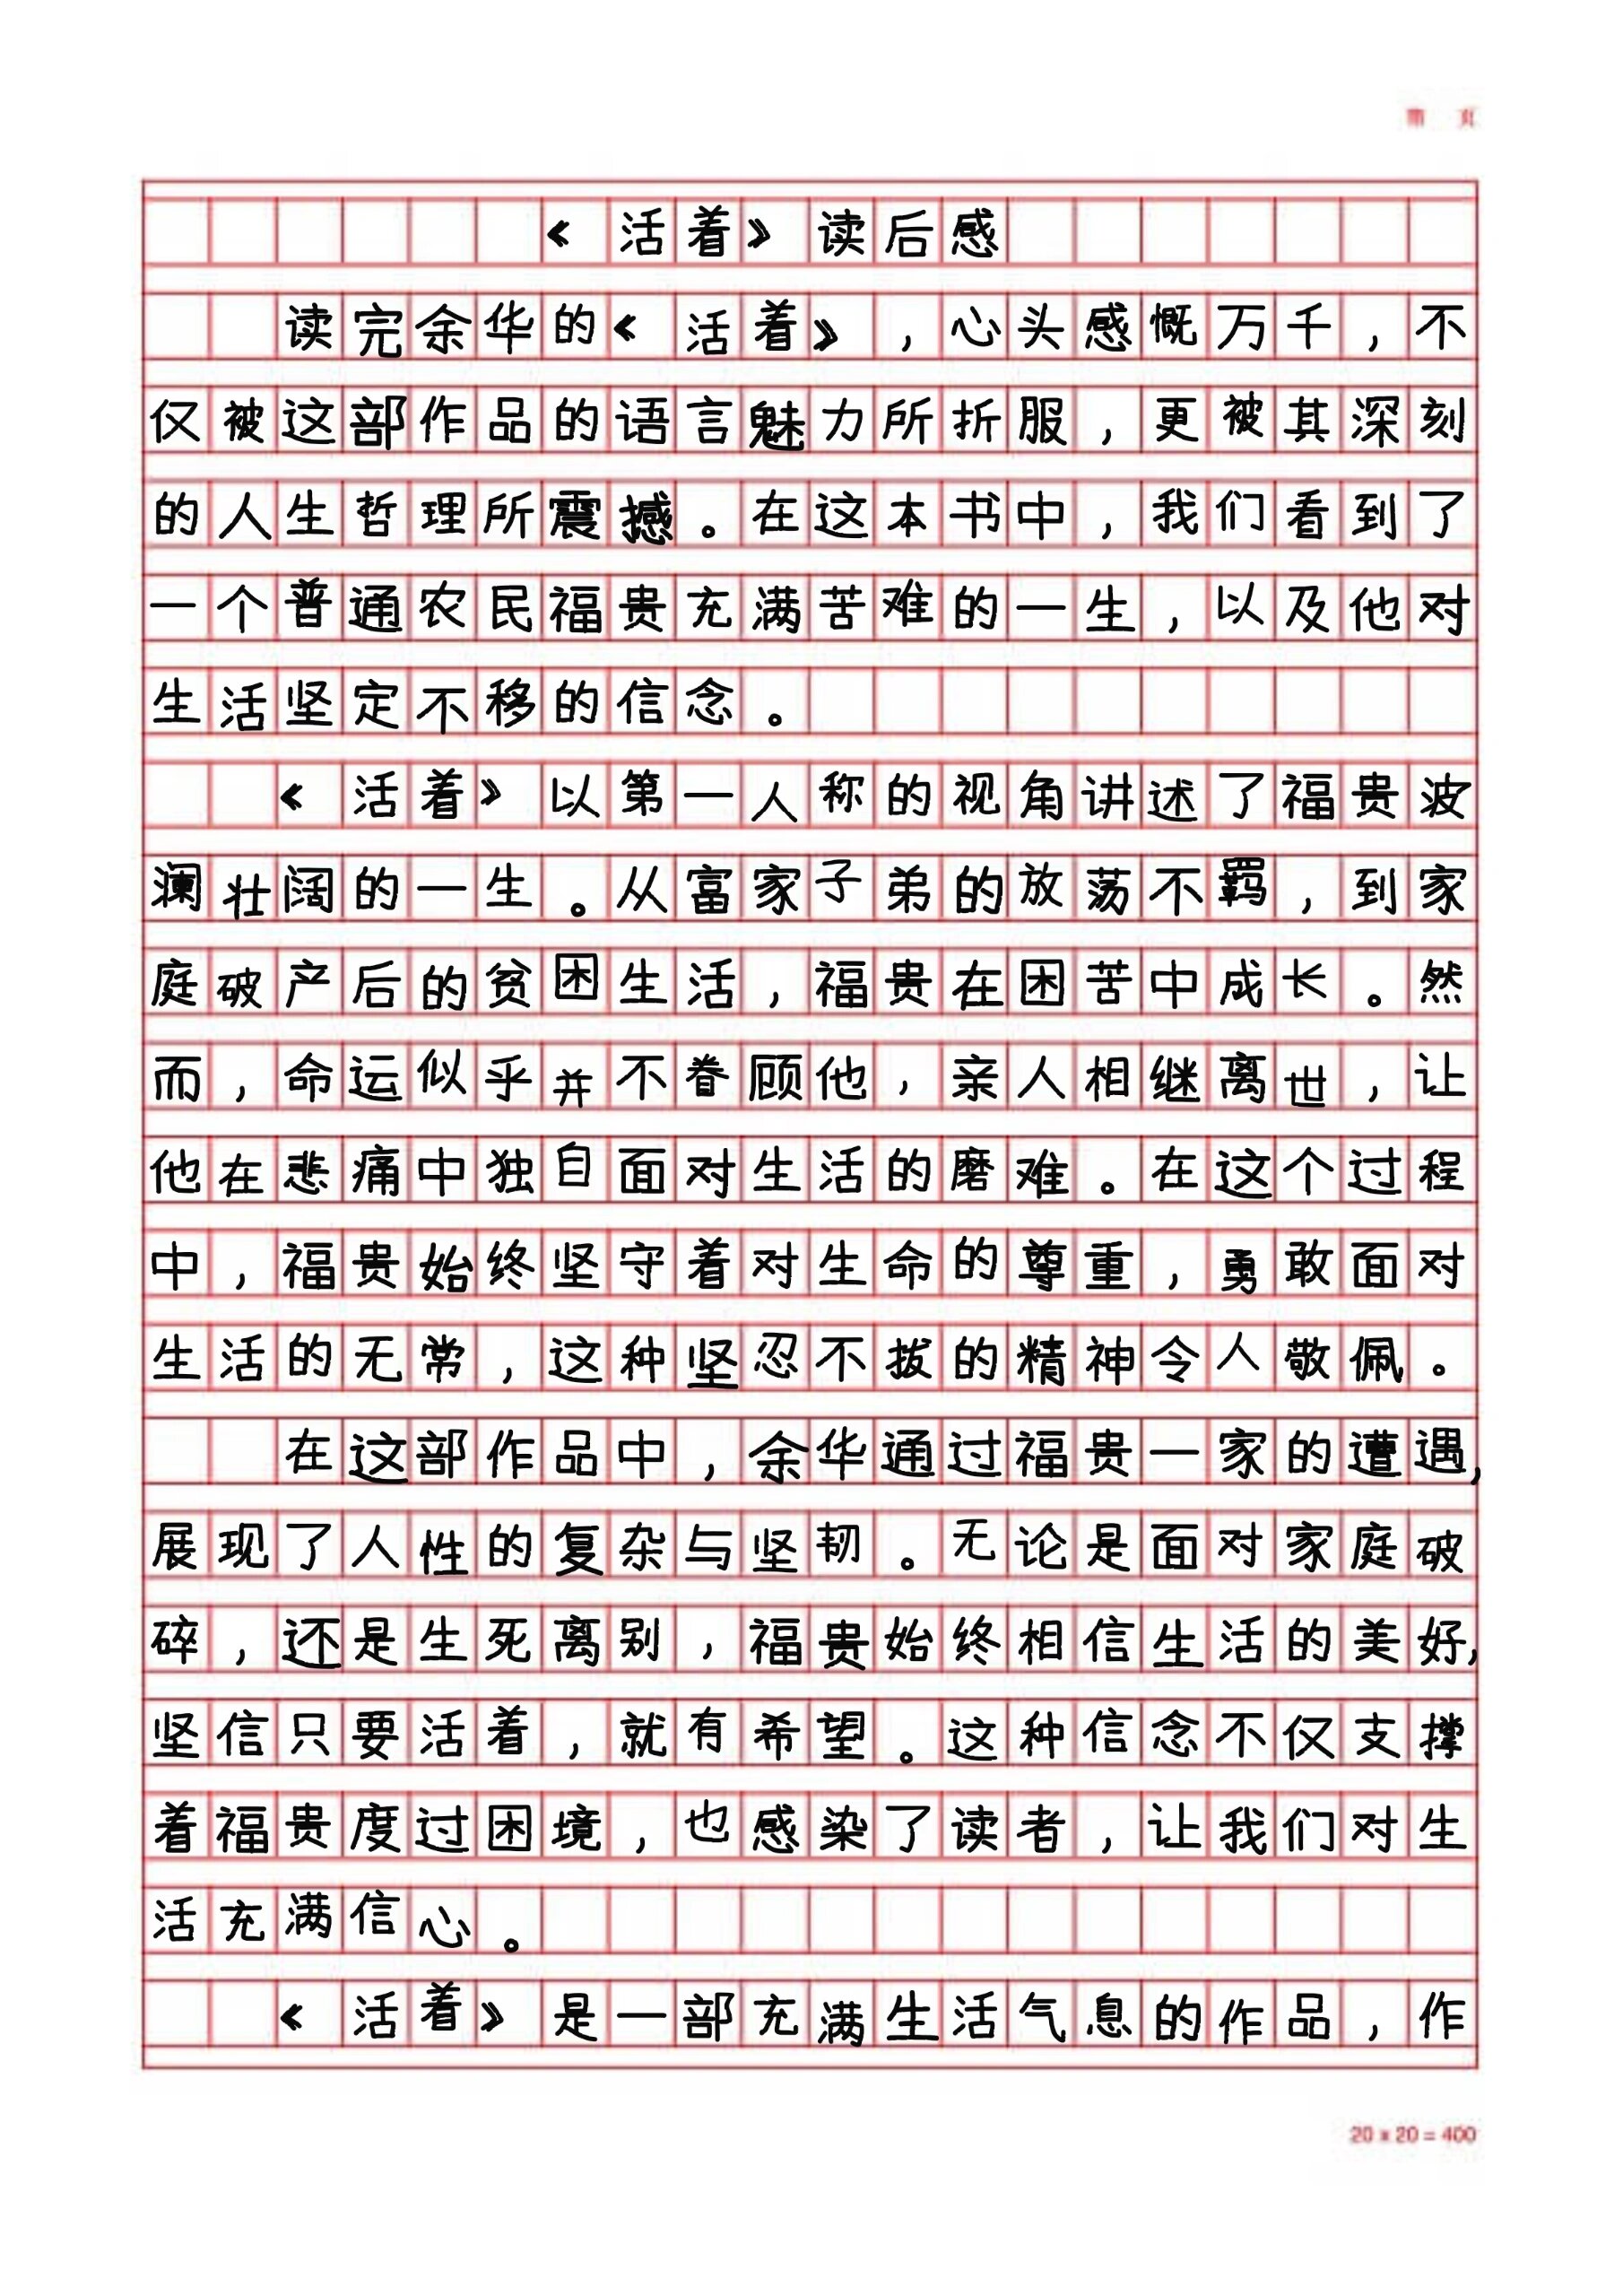 第 页
《活着》读后感
读完余华的《活着》，心头感慨万千，不
仅被这部作品的语言魅力所折服，更被其深刻
的人生哲理所震撼。在这本书中，我们看到了
一个普通农民福贵充满苦难的一生，以及他对
生活坚定不移的信念。
《活着》以第一人称的视角讲述了福贵波
澜壮阔的一生。从富家子弟的放荡不羁，到家
庭破产后的贫困生活，福贵在困苦中成长。然
而，命运似乎并不眷顾他，亲人相继离世，让
他在悲痛中独自面对生活的磨难。在这个过程
中，福贵始终坚守着对生命的尊重，勇敢面对
生活的无常，这种坚忍不拔的精神令人敬佩。
在这部作品中，余华通过福贵一家的遭遇，
展现了人性的复杂与坚韧。无论是面对家庭破
碎，还是生死离别，福贵始终相信生活的美好，
坚信只要活着，就有希望。这种信念不仅支撑
着福贵度过困境，也感染了读者，让我们对生
活充满信心。
《活着》是一部充满生活气息的作品，作
20 x 20 = 400